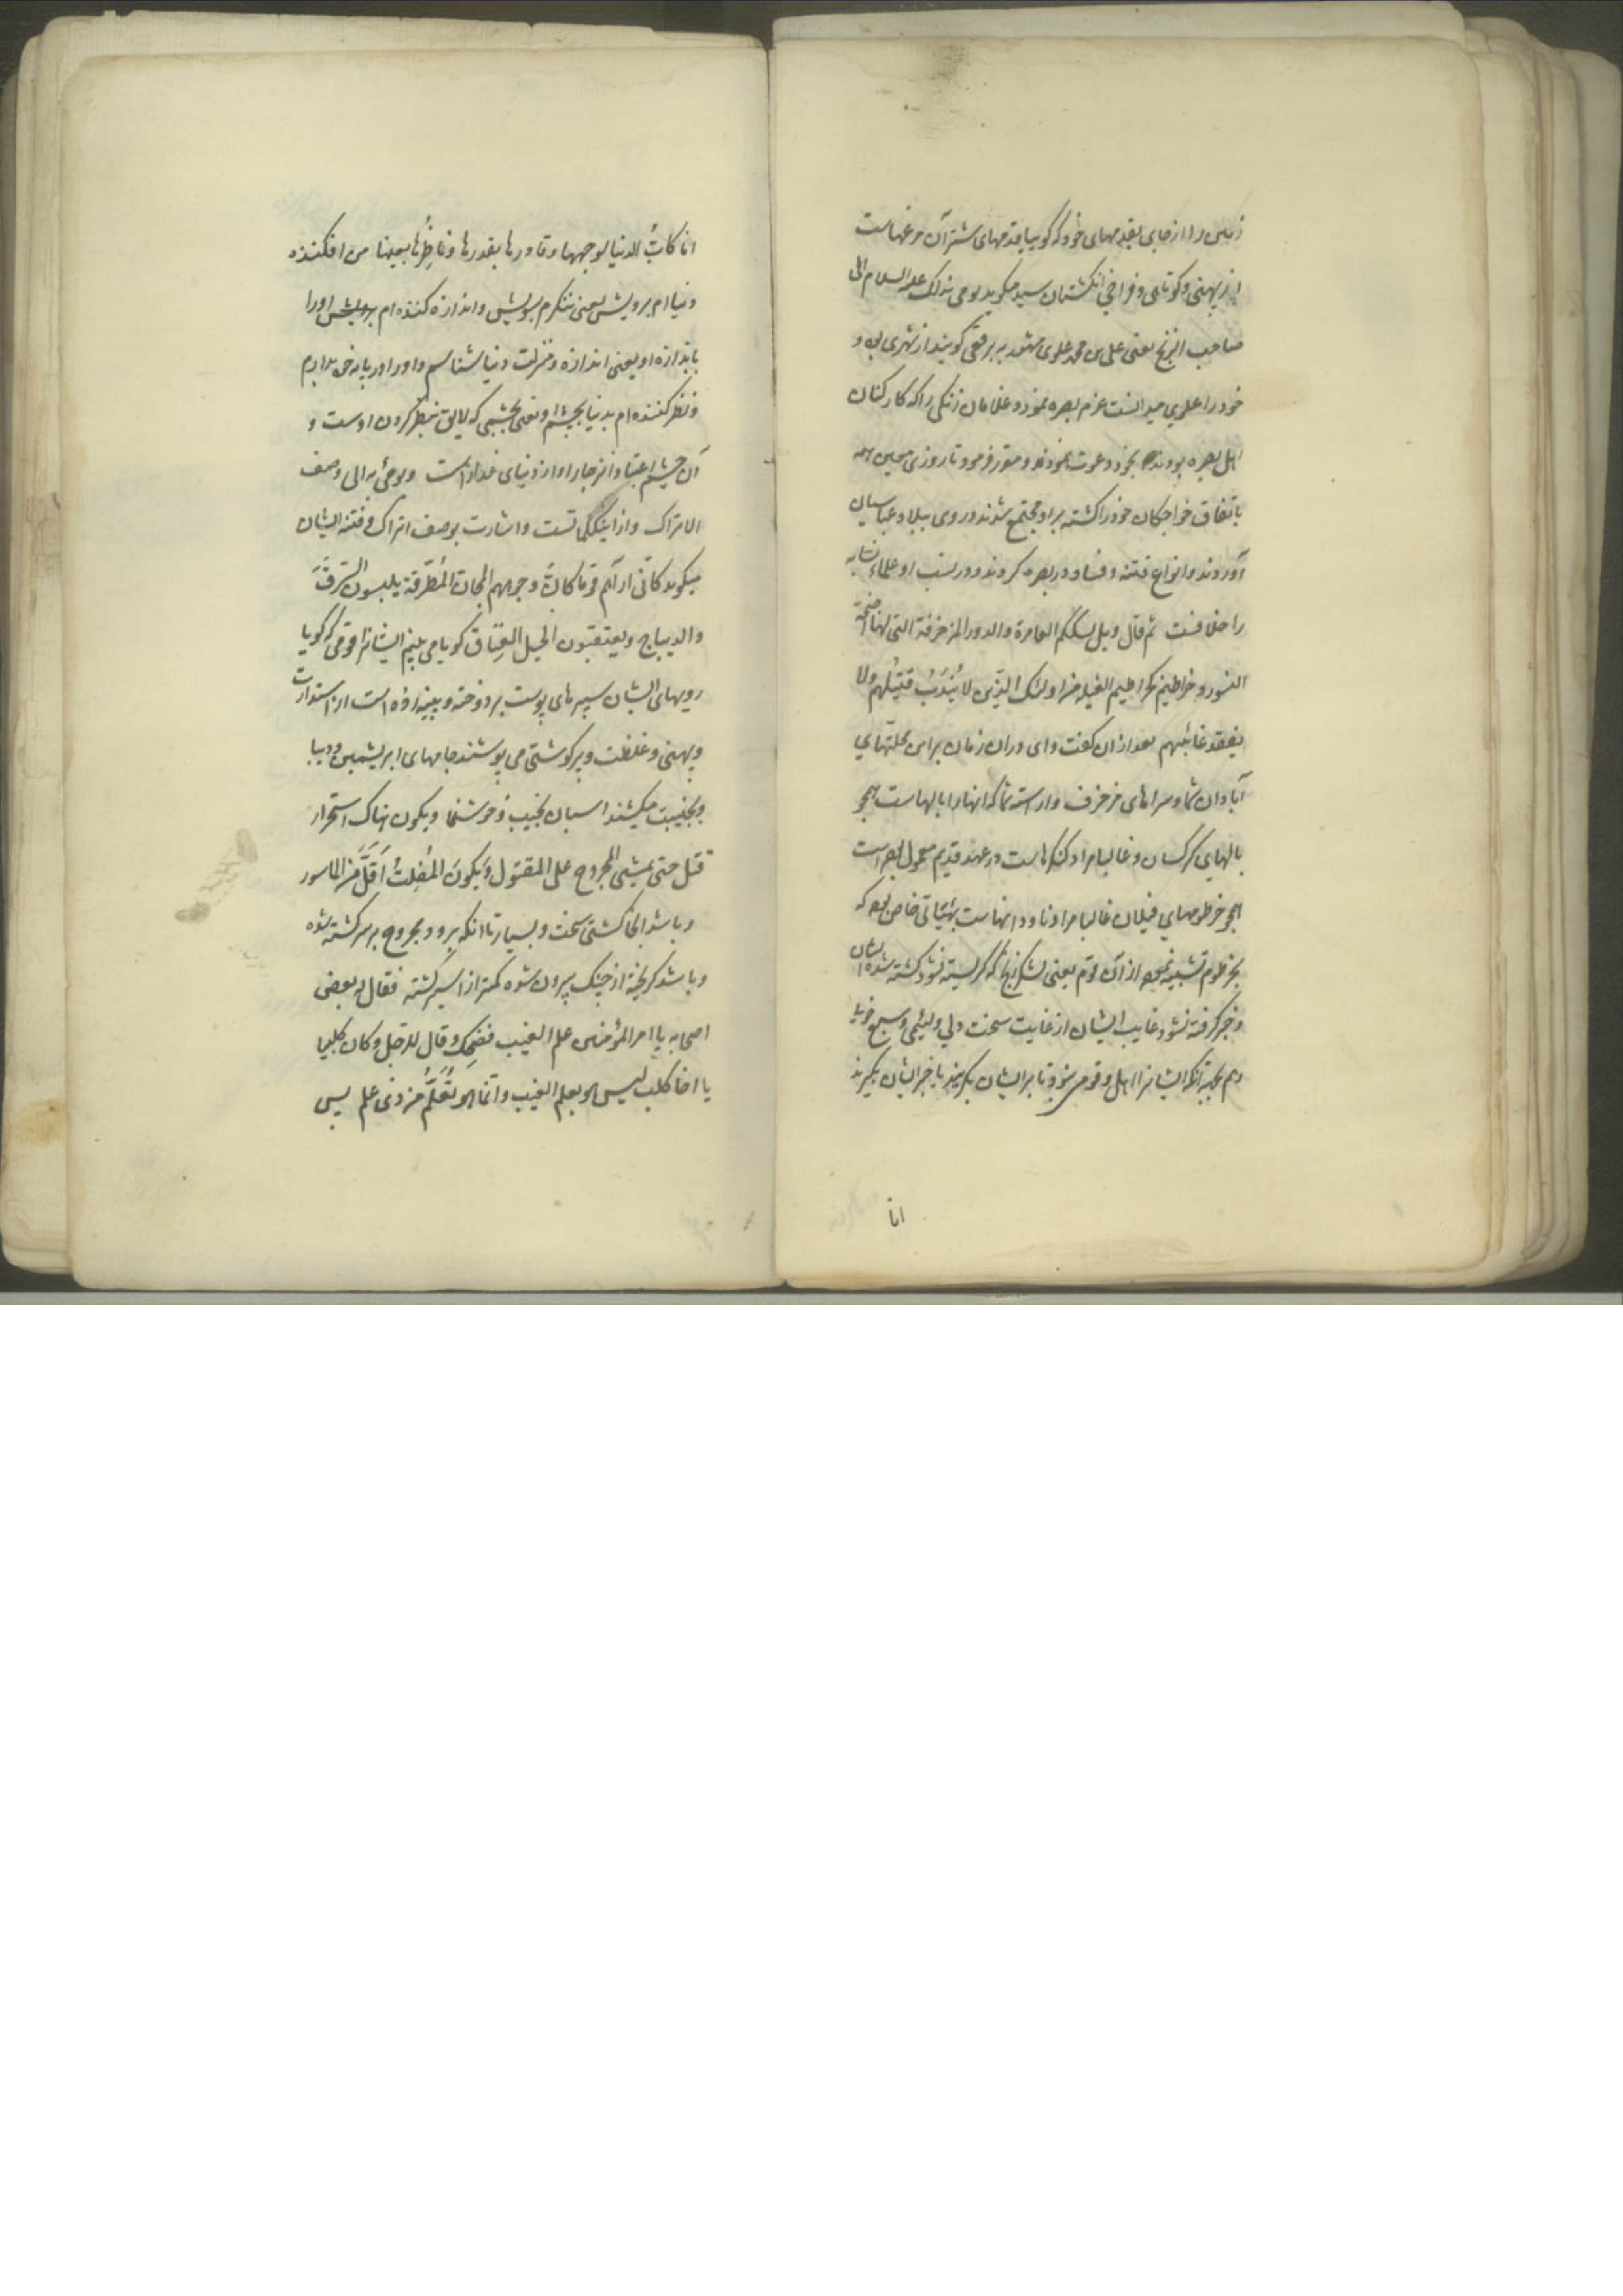 زمین را از جای بقدمهای خود که گوییا قدمهای شتر آن مرغهاست
از پهنی و کوتاهی و فراخی انگشتان سید میگوید یومی بذلک علیه السلام الی
صاحب الزنج یعنی علی بن محمد علوی مشهور به برقعی گویند از شهری بوده و
خود را علوی میدانست عزم بصره نمود و غلامان زنگی را که کارکنان
اهل بصره بودند بخود دعوت نمودند و مقرر فرمود تا روزی معین همه
باتفاق خواجگان خود را کشته بر او مجتمع شدند و روی ببلاد عباسیان
آوردند و انواع فتنه و فساد در بصره کردند و در نسب او علماء نسابه
را خلافست ثم قال ویل لسککم العامرة والدور المزخرفة التی لها اجنحة
النسور و خراطیم کخراطیم الفیله من اولئک الذین لا یُندَبُ قتیلُهم ولا
یفقد غائبُهم بعد از ان گفت وای دران زمان براین محلتهای
آبادان شما و سراهای مزخرف و اراسته شما که انها را بالهاست همچو
بالهای کرکسان و غالبا مراد کنگرهاست در عهد قدیم معمول بصراست
همچو خرطومهای فیلان غالبا مراد ناودانهاست بهیئاتی خاص بوده که
بخرطوم تشبیه نموده از آن قوم یعنی لشکر زنج که گریسته نشود کشته شده ایشان
و خبر گرفته نشود غایب ایشان از غایت سخت دلی و لئیمی و سبع خویی
و هم بجهة آنکه ایشانرا اهل و قومی نبود تا بر ایشان بگریند یا خبر ایشان بگیرند
انا
انا کابُّ الدنیا لوجهها و قادرها بقدرها و ناظِرُها بعینها من افکننده
دنیاام برویش یعنی ننگرم بسویش و اندازه کننده ام برویش اورا
باندازه او یعنی اندازه و منزلت دنیا شناسم و او را در پایه خود بدارم
و نظرکننده ام بدنیا بچشم او یعنی بچشمی که لایق بنظر کردن اوست و
آن چشم اعتبار و انزجار او از دنیای غدار است ویومئ به الی وصف
الاتراک و از اینکلماتست و اشارت بوصف اتراک و فتنه ایشان
میگوید کانّی اراهم قوما کانّ وجوههم المجانّ المُطَرَّقة یلبسون السَّرَقَ
والدیباج ویعتقبون الخیل العِتاق گویا می بینم ایشانرا قومی که گویا
رویهای ایشان سپرهای پوست بر دوخته و بپینه زده است از استدارت
و پهنی و غلظت و پرگوشتی می پوشند جامهای ابریشمین و دیبا
و بجنیبت میکشند اسبان نجیب و خوشنما ویکون هناک استحرار
قتل حتی یمشی المجروح علی المقتول وَیَکونَ المُفلِتُ اَقَلَّ مِنَ الماسور
و باشد انجا کشتی سخت و بسیار تا انکه برود مجروح بر سر کشته شده
و باشد گریخته از جنک بیرون شده کمتر از اسیر گشته فقال له بعض
اصحابه یا امیر المؤمنین علم الغیب فضحک و قال للرجل و کان کلبیا
یا اخا کلب لیس هو بعلم الغیب وانما هو تعلُّم من ذی علم پس